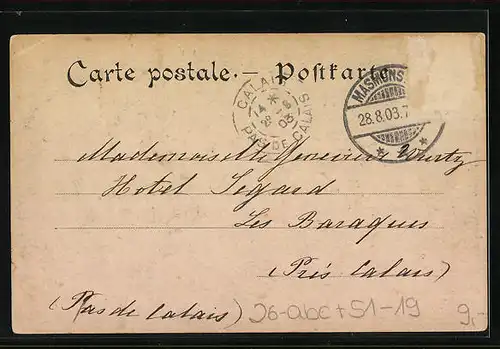 Carte postale. — Postkarte
CALAIS
14 *
28 -8
03
PAS DE CALAIS
28.8.03.7
Mademoiselle Genevieve Wurtz
Hotel Segard
Les Baraques
(Près Calais)
(Pas de Calais)
J6-abc+S1-19
9,-